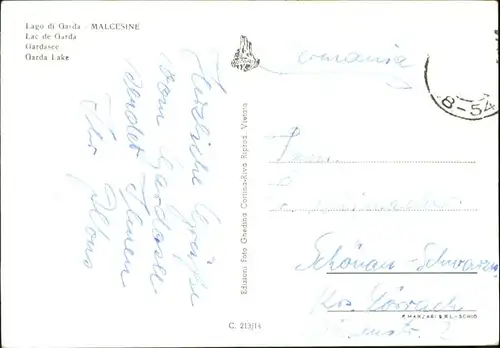 Lago di Garda - MALCESINE
Lac de Garda
Gardasee
Garda Lake
Herzliche Grüße
vom Gardasee
sendet Ihnen
Ihr
Edizioni Foto Gnedina Cortina-Riva Riprod. Vietata
C. 213/14
Germania
8-54
Schönau-Schwarzw.
Krs. Lörrach
F. MARZARI S.R.L.-SCHIO
2